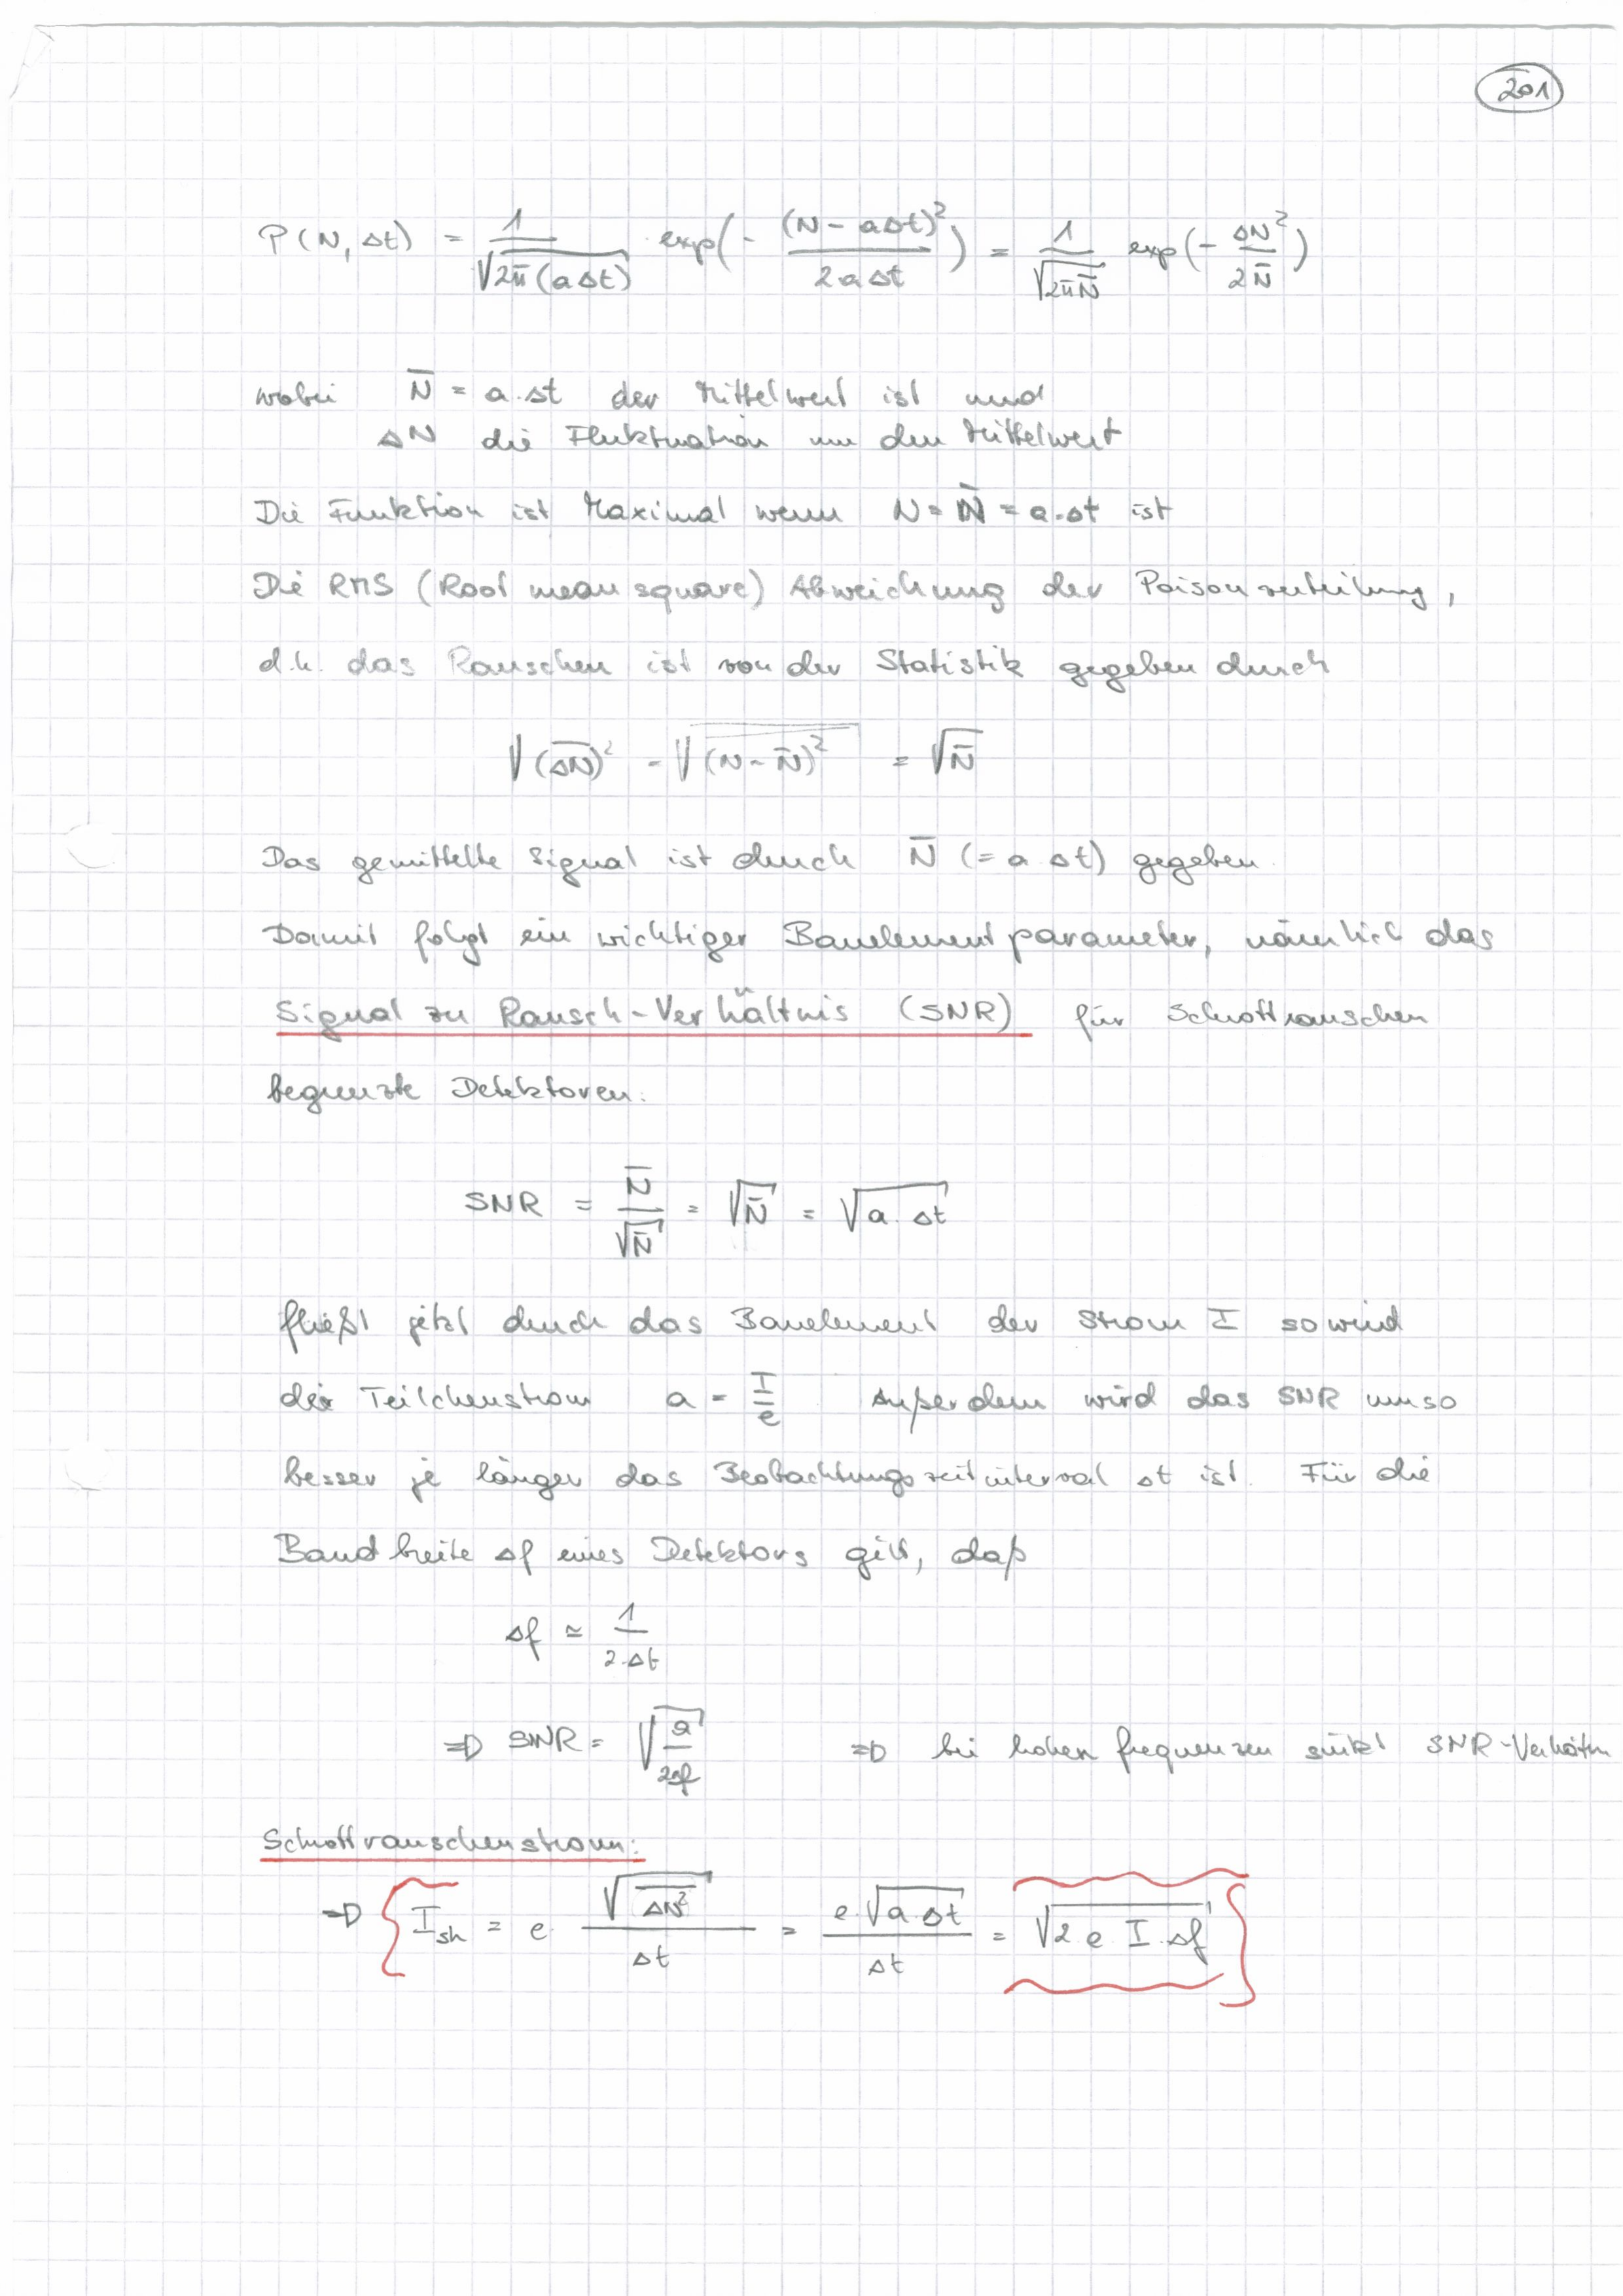 201
P(N, Δt) = 1/√(2π(aΔt)) · exp(- (N - aΔt)²/(2aΔt)) = 1/√(2πN̄) exp(- ΔN²/(2N̄))
wobei N̄ = a·Δt der Mittelwert ist und
ΔN die Fluktuation um den Mittelwert
Die Funktion ist Maximal wenn N = N̄ = a·Δt ist
Die RMS (Root mean square) Abweichung der Poisonverteilung,
d.h. das Rauschen ist von der Statistik gegeben durch
√(Δ̅N̅)² = √(N - N̄)² = √N̄
Das gemittelte Signal ist durch N̄ (= a·Δt) gegeben.
Damit folgt ein wichtiger Bauelementparameter, nämlich das
Signal zu Rausch-Verhältnis (SNR) für Schrottrauschen
begrenzte Detektoren.
SNR = N̄/√N̄ = √N̄ = √(a·Δt)
fließt jetzt durch das Bauelement der Strom I so wird
der Teilchenstrom a = I/e Außerdem wird das SNR umso
besser je länger das Beobachtungszeitinterval Δt ist. Für die
Bandbreite Δf eines Detektors gilt, daß
Δf ≃ 1/(2·Δt)
⇒ SNR = √(a/(2Δf)) ⇒ bei hohen frequenzen sinkt SNR-Verhältn
Schrottrauschenstrom:
⇒ { I_sh = e · √(Δ̅N̅²)/Δt = e·√(a·Δt)/Δt = √(2·e·I·Δf) }